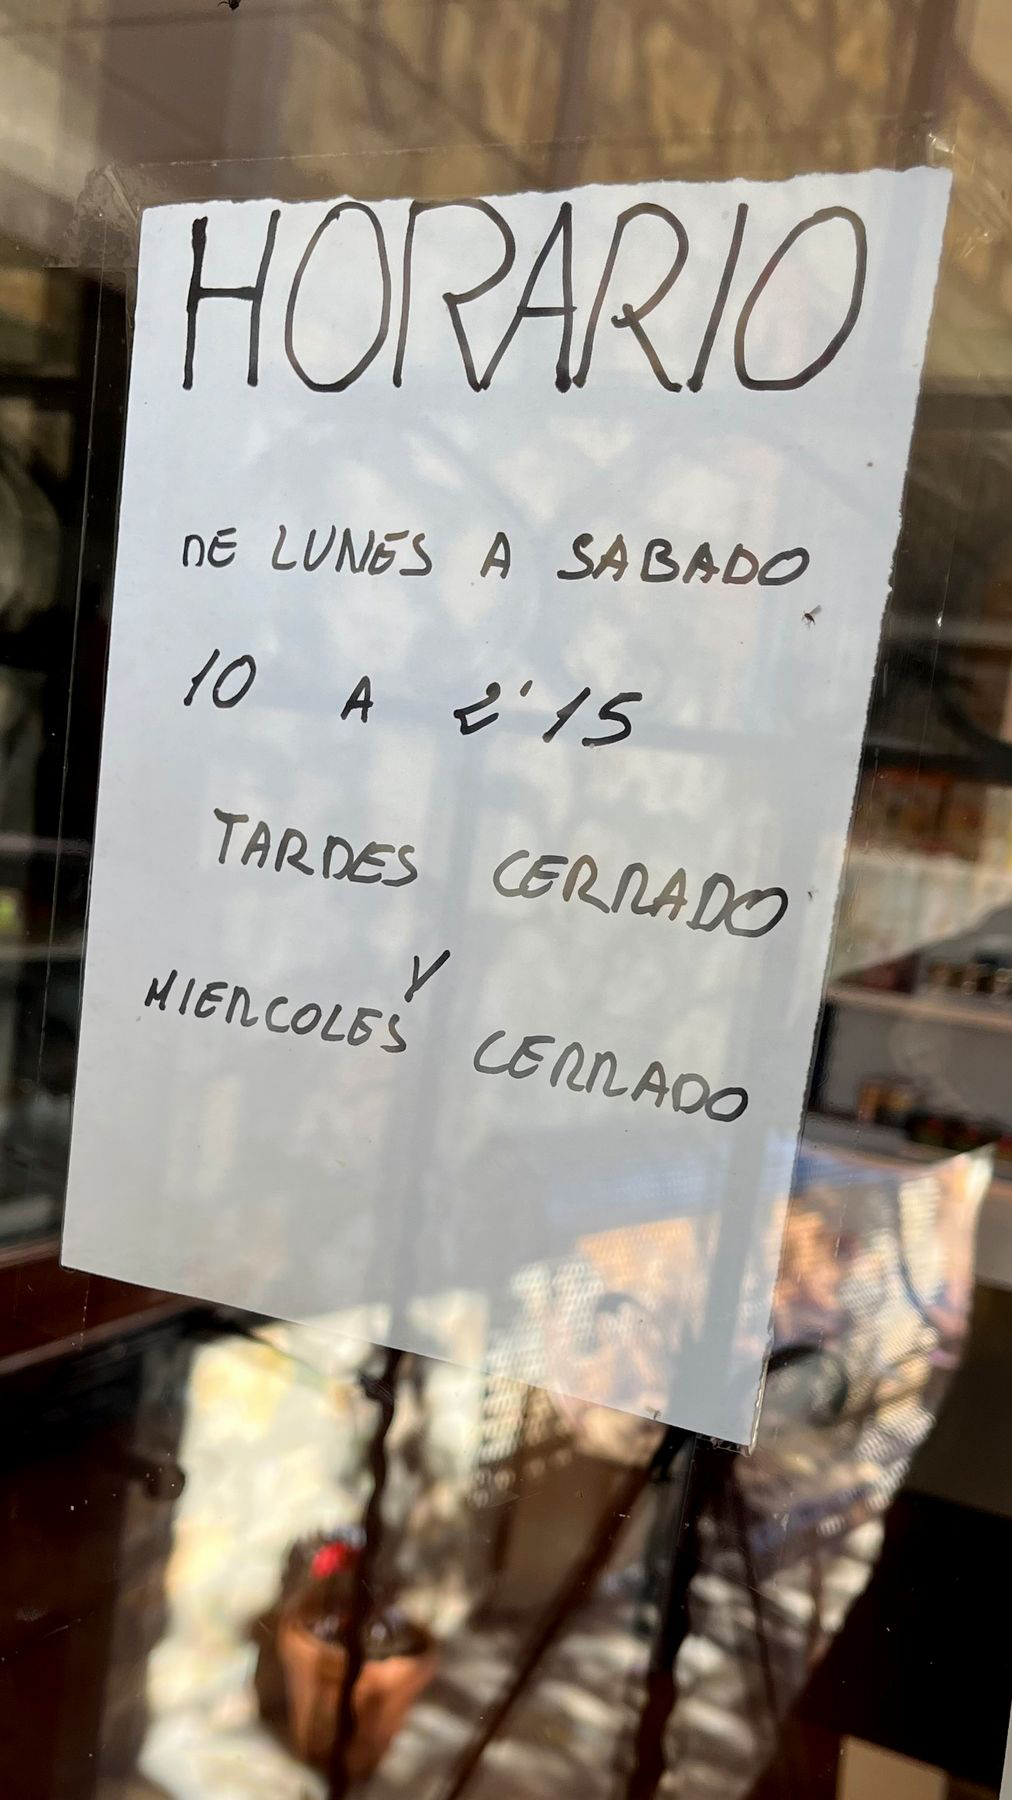 HORARIO
DE LUNES A SABADO
10 A 2'15
TARDES CERRADO
Y
MIERCOLES CERRADO